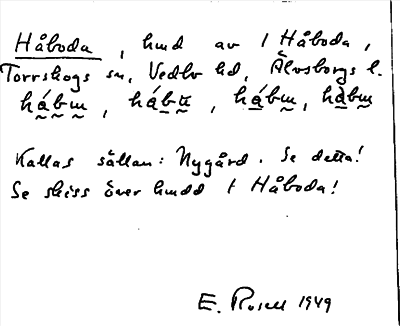 Håboda, hmd av 1 Håboda,
Torrskogs sn, Vedbo hd, Älvsborgs l.
Kallas sällan: Nygård. Se detta!
Se skiss över hmdd t Håboda!
E. Rosell 1949